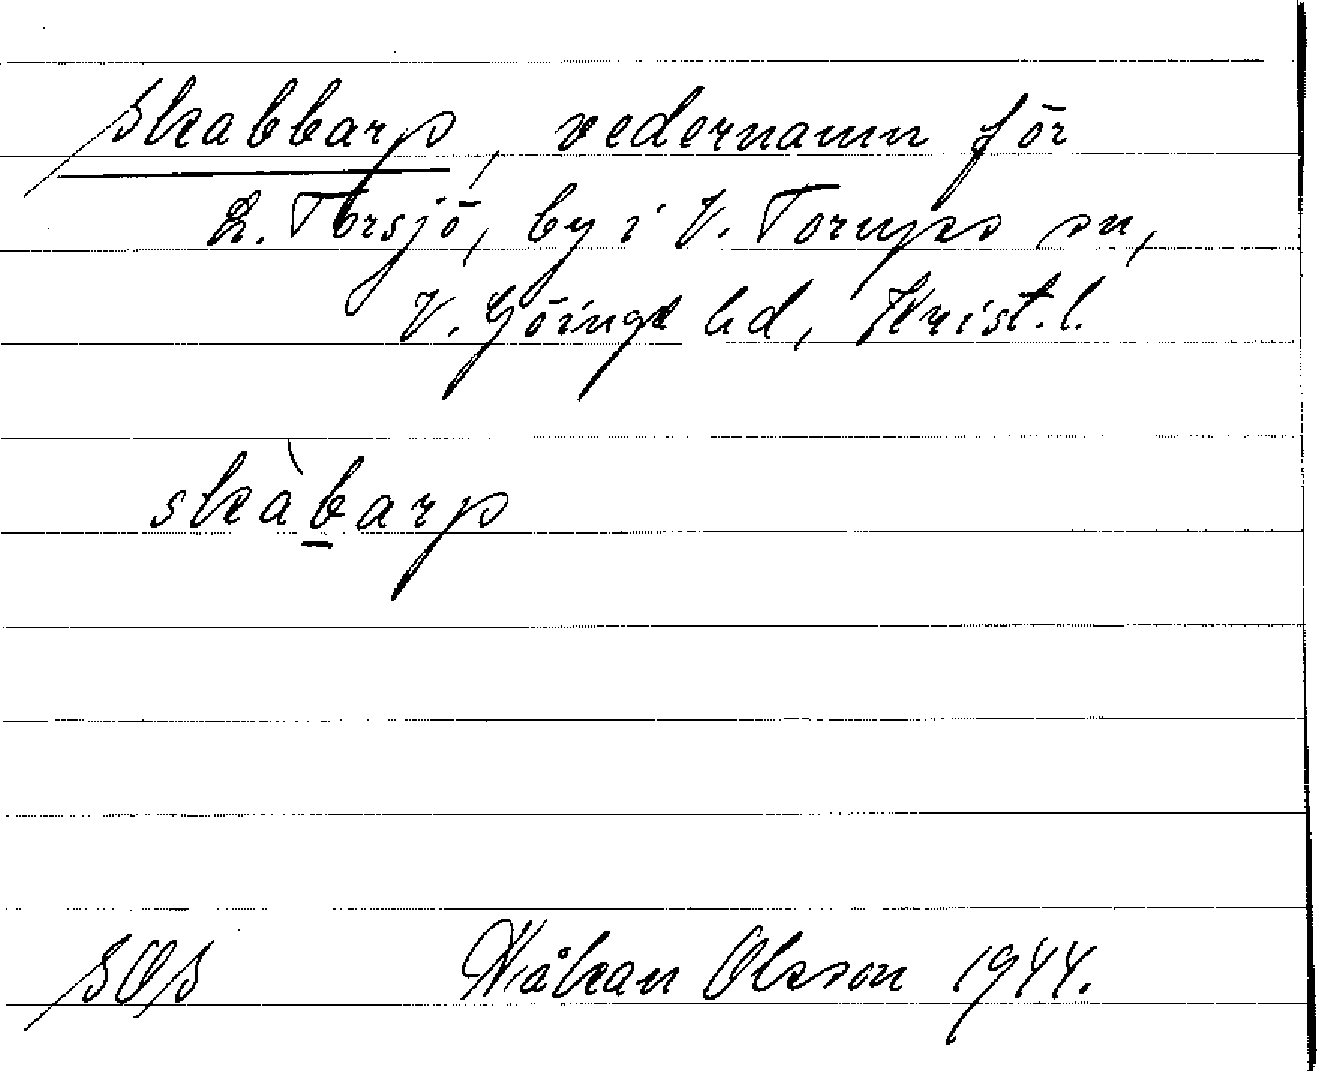 Skabbarp, vedernamn för
L. Torsjö, by i V. Torups sn,
V. Göinge hd, Krist. l.
skàbarp
SOS Håkan Olsson 1944.